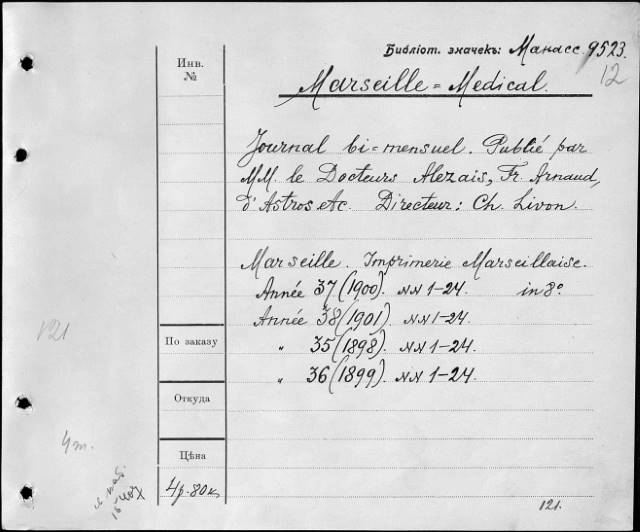 Библіот. значекъ: Манасс. 9523.
12
Инв.
№
Marseille-Medical.
Journal bi-mensuel. Publié par
MM. le Docteurs Alezais, Fr. Arnaud,
d'Astros etc. Directeur: Ch. Livon.
Marseille. Imprimerie Marseillaise.
Année 37 (1900). NN 1-24. in 8°.
Année 38 (1901). NN 1-24.
" 35 (1898). NN 1-24.
" 36 (1899). NN 1-24.
121
По заказу
Откуда
Цѣна
4р-80к
4т.
121.